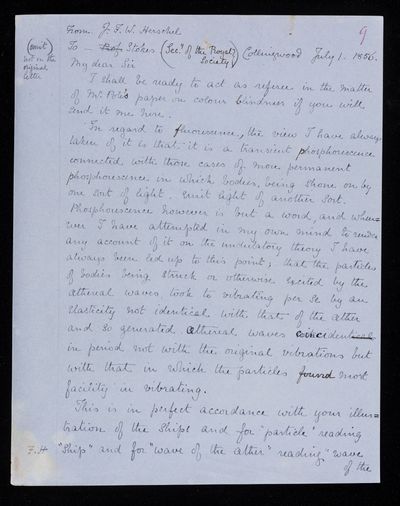 9
From J. F. W. Herschel
(omit) To – Prof Stokes (Sec.y of the Royal Society) Collingwood July 1. 1856.
not in the original letter
My dear Sir
I shall be ready to act as referee in the matter
of Mr. Pole's paper on colour blindness if you will
send it me here.
In regard to fluorescence, the view I have always
taken of it is that it is a transient phosphorescence
connected with those cases of more permanent
phosphorescence in which bodies, being shone on by
one sort of light emit light of another sort.
Phosphorescence however is but a word, and when=
ever I have attempted in my own mind to render
any account of it on the undulatory theory I have
always been led up to this point; that the particles
of bodies being struck or otherwise excited by the
ætherial waves, took to vibrating per se by an
elasticity not identical with that of the æther
and so generated ætherial waves coincident
in period not with the original vibrations but
with that in which the particles found most
facility in vibrating.
This is in perfect accordance with your illus=
tration of the Ships and for "particle" reading
F.H "Ship" and for "wave of the æther" reading "wave
of the